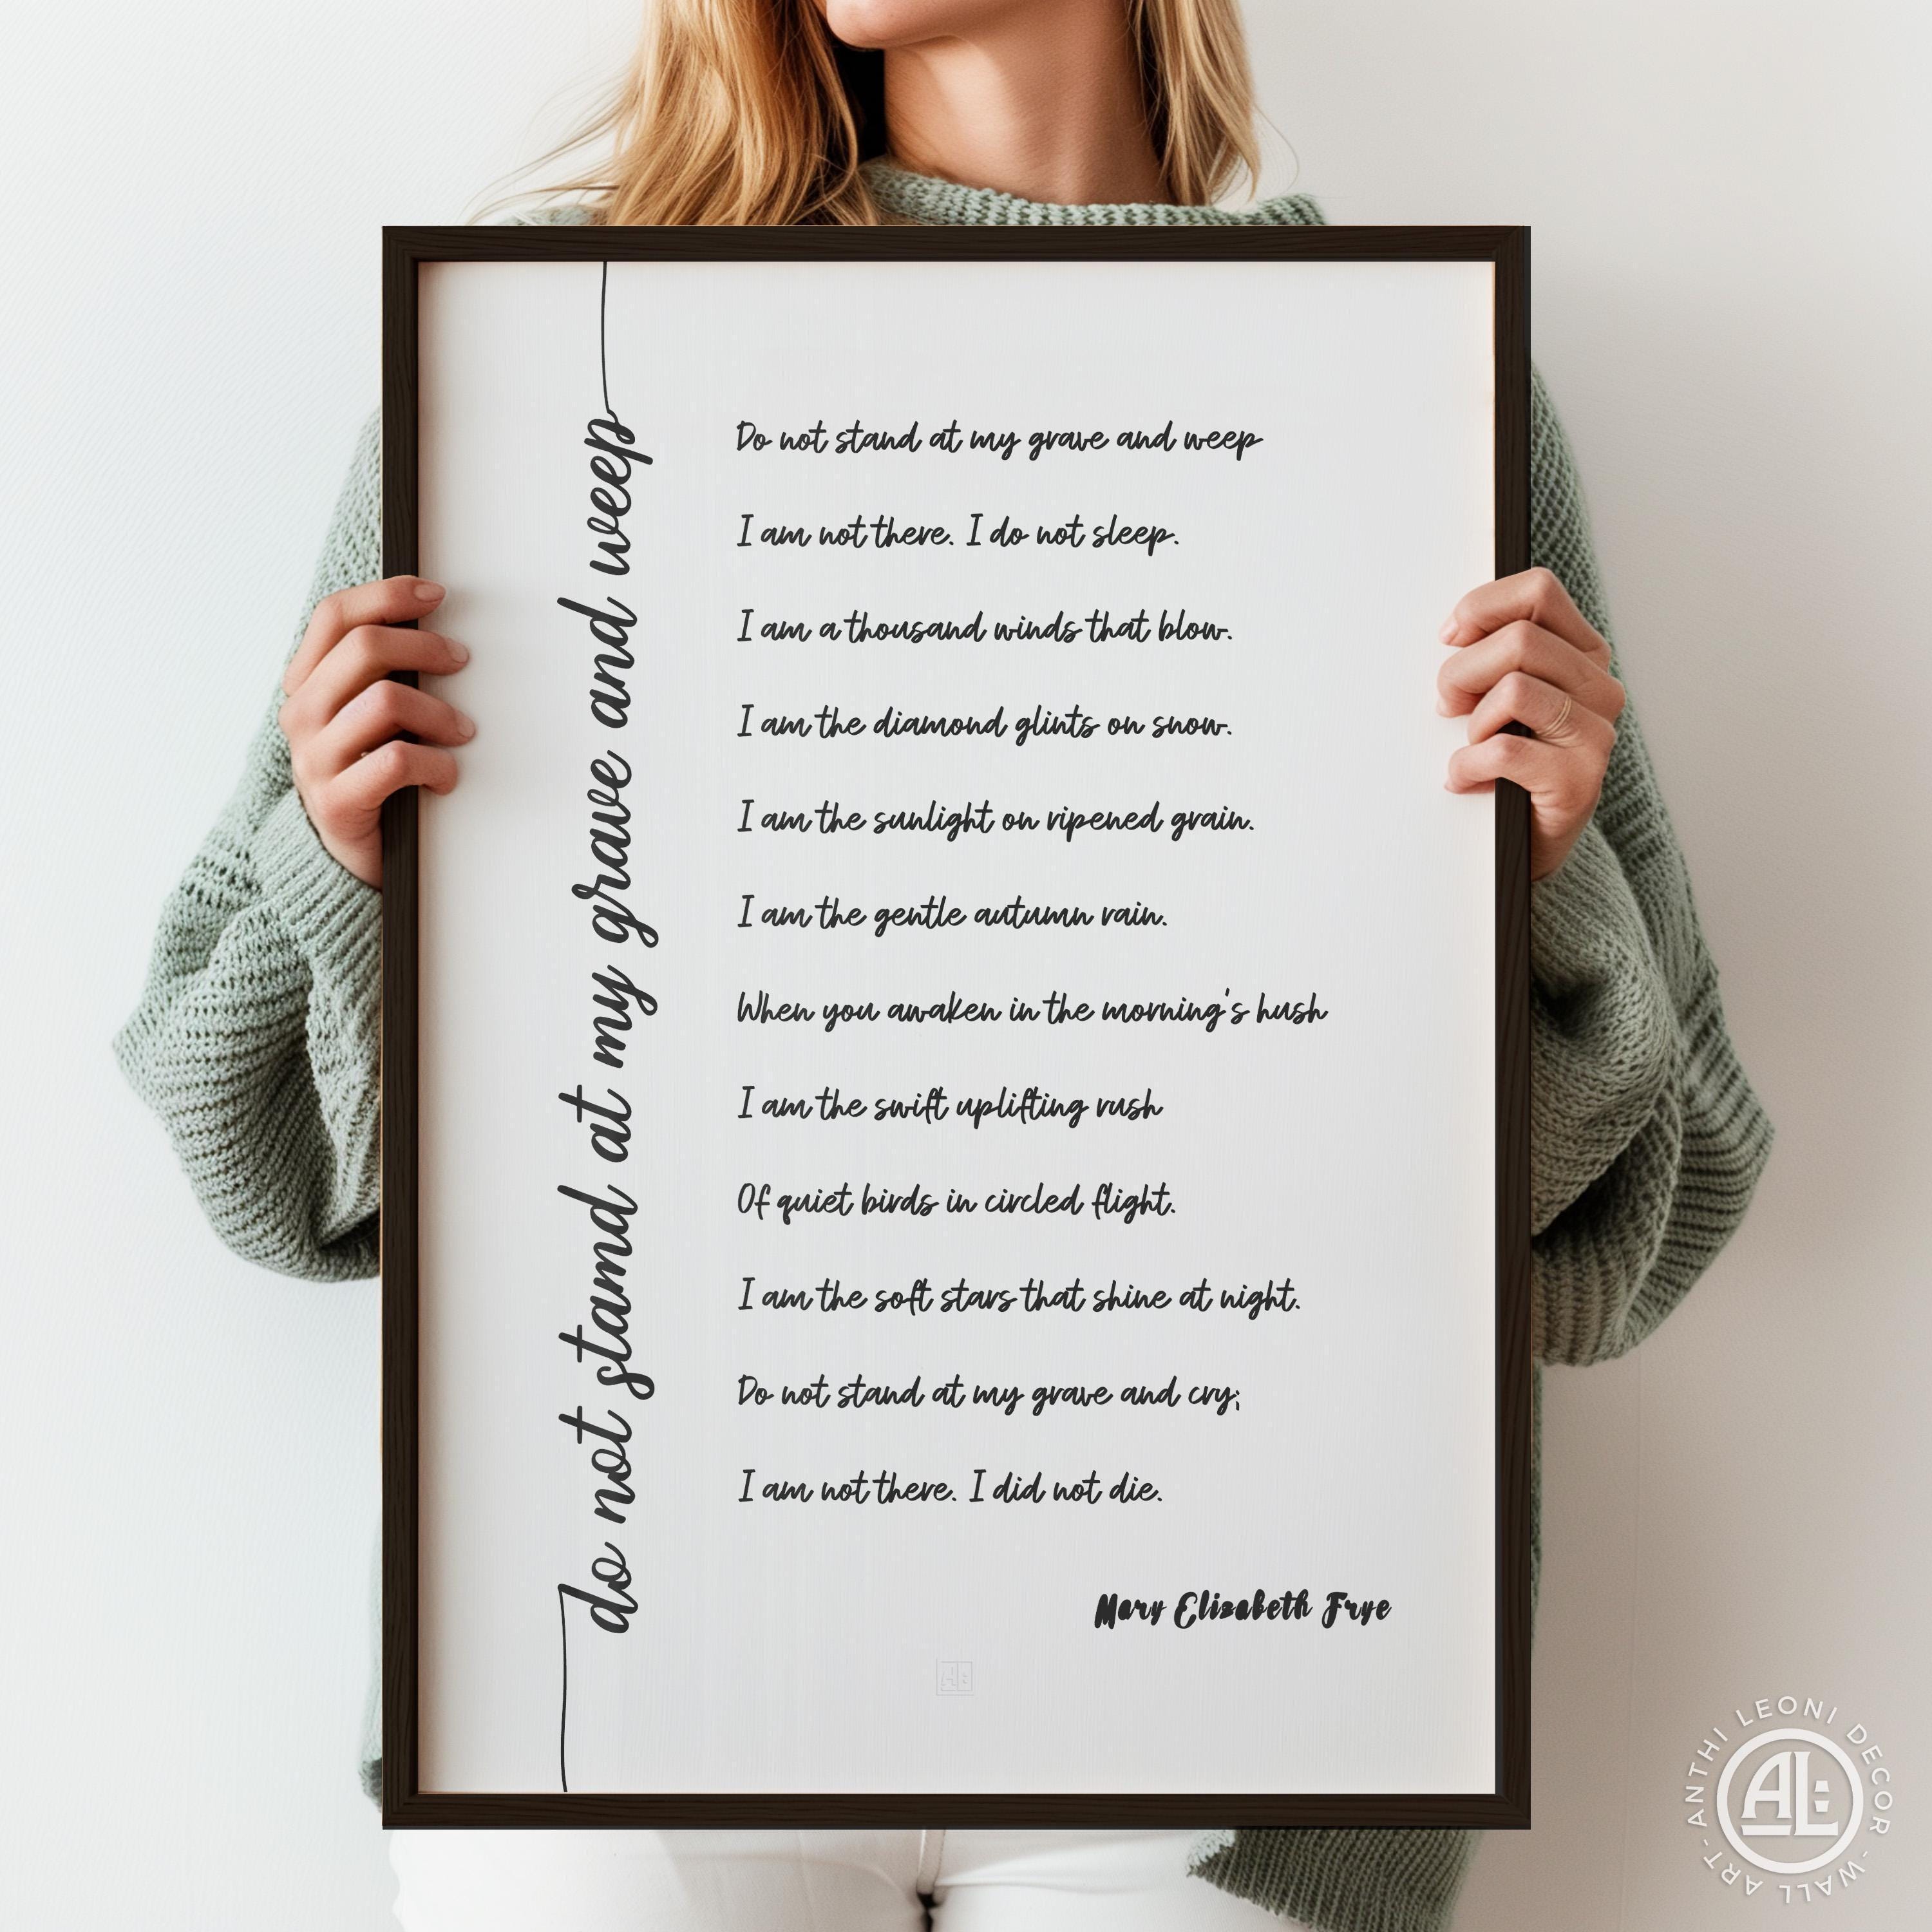 do not stamd at my grave and weep
Do not stand at my grave and weep
I am not there. I do not sleep.
I am a thousand winds that blow.
I am the diamond glints on snow.
I am the sunlight on ripened grain.
I am the gentle autumn rain.
When you awaken in the morning's hush
I am the swift uplifting rush
Of quiet birds in circled flight.
I am the soft stars that shine at night.
Do not stand at my grave and cry;
I am not there. I did not die.
Mary Elizabeth Frye
AL:
ANTHI LEONI DECOR - WALL ART -
AL: